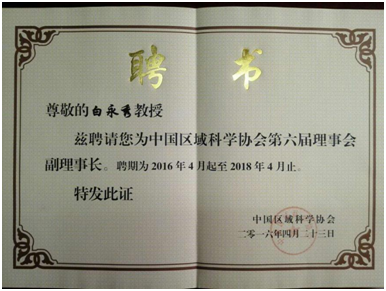 聘书
尊敬的白永秀教授
兹聘请您为中国区域科学协会第六届理事会
副理事长。聘期为2016年4月起至2018年4月止。
特发此证
中国区域科学协会
二〇一六年四月二十三日